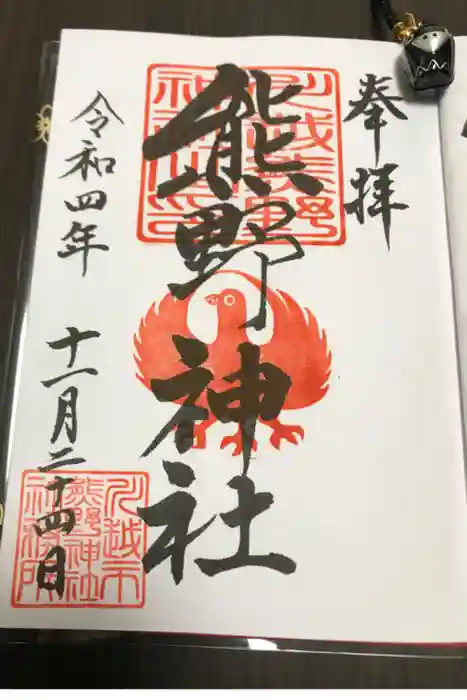 奉拝
川越熊野
神社
熊野神社
令和四年 十一月二十四日
川越市
熊野神社
社務所